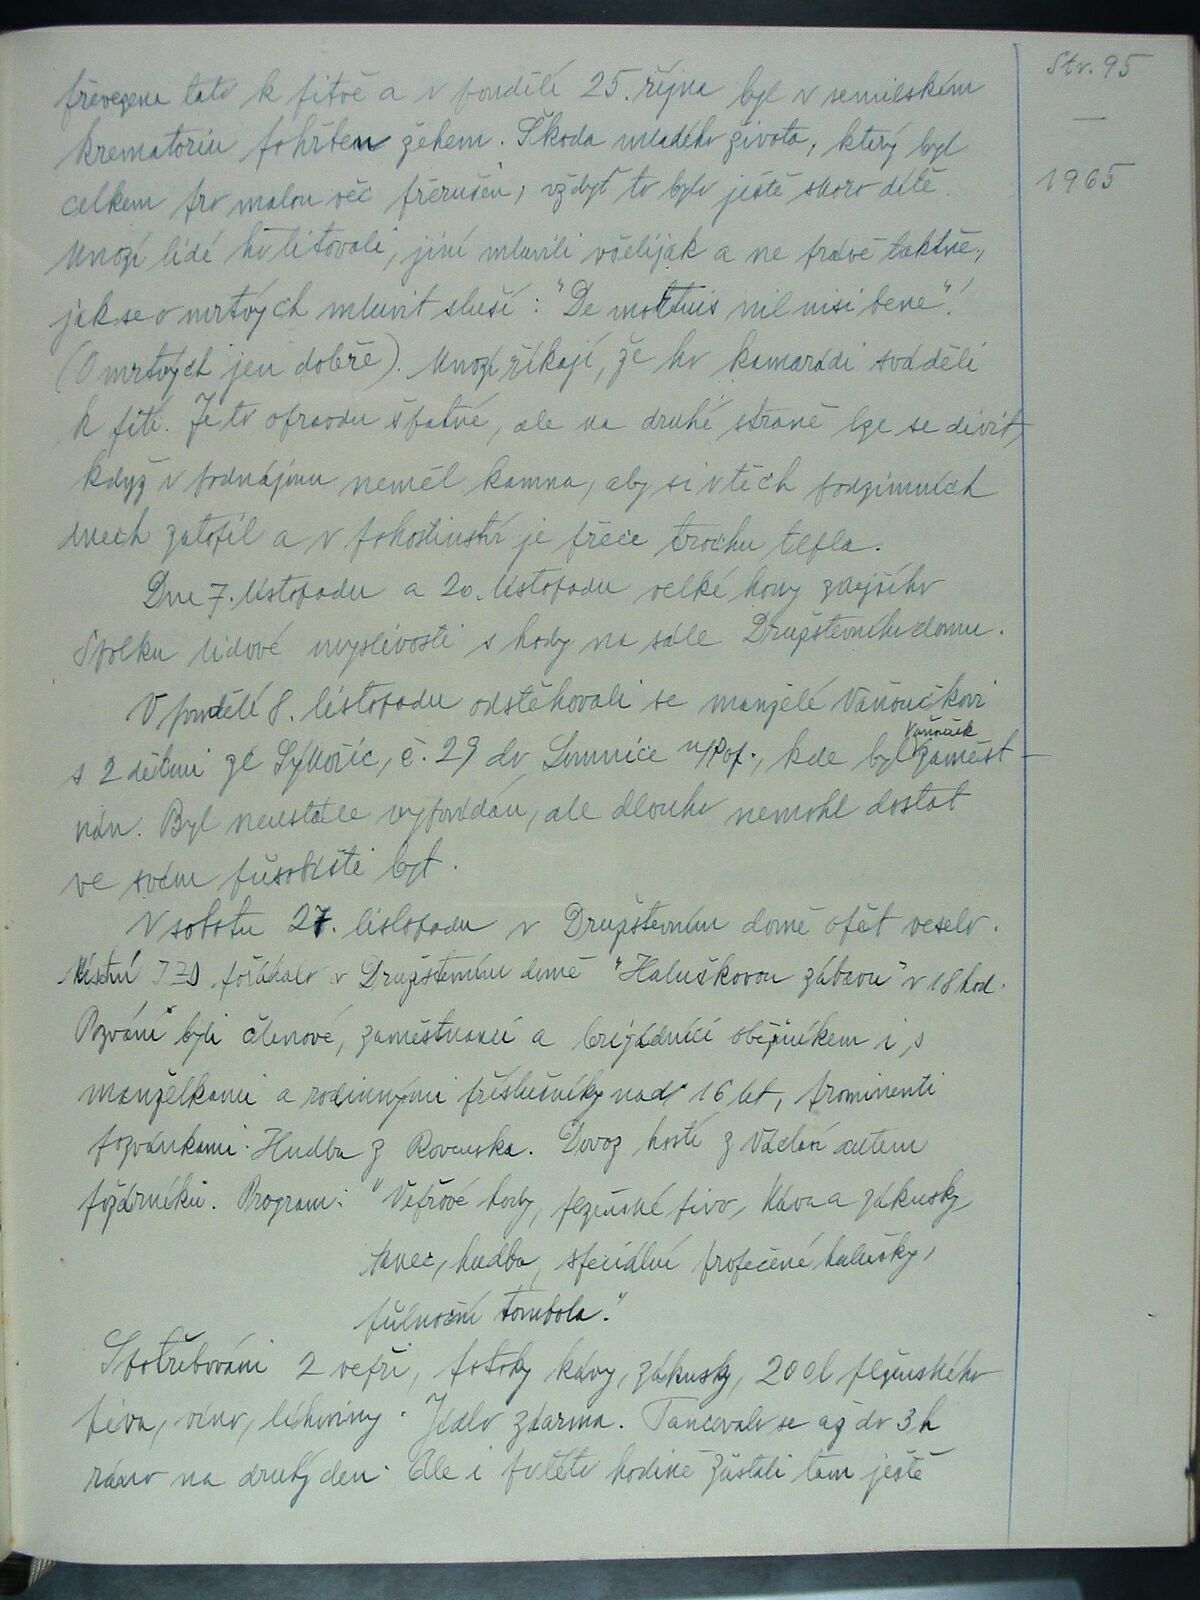 Str. 95
1965
převezena tato k pitvě a v pondělí 25. října byl v semilském
krematoriu pohřben žehem. Škoda mladého života, který byl
celkem pro malou věc přerušen, vždyť to bylo ještě skoro dítě.
Mnozí lidé ho litovali, jiní mluvili všelijak a ne právě taktně,
jak se o mrtvých mluvit sluší: "De mortuis nil nisi bene"!
(O mrtvých jen dobře). Mnozí říkají, že ho kamarádi sváděli
k pití. Je to opravdu špatné, ale na druhé straně lze se divit,
když v podnájmu neměl kamna, aby si v těch podzimních
dnech zatopil a v pohostinství je přece trochu tepla.
Dne 7. listopadu a 20. listopadu velké hony zdejšího
Spolku lidové myslivosti s hody na sále Družstevního domu.
V pondělí 8. listopadu odstěhovali se manželé Vaňoučkovi
s 2 dětmi ze Sýkořic, č. 29 do Lomnice n/Pop., kde byl Vaňouček zaměst-
nán. Byl neustále vypovídán, ale dlouho nemohl dostat
ve svém působišti byt.
V sobotu 27. listopadu v Družstevním domě opět veselo.
Místní JZD pořádalo v Družstevním domě "Haluškovou zábavu" v 18 hod.
Pozváni byli členové, zaměstnanci a brigádníci oběžníkem i s
manželkami a rodinnými příslušníky nad 16 let, prominenti
pozvánkami. Hudba z Rovenska. Dovoz hostí z Václaví autem
požárníků. Program: "Vepřové hody, plzeňské pivo, káva a zákusky,
tanec, hudba, speciální propečené halušky,
půlnoční tombola."
Spotřebováni 2 vepři, potoky kávy, zákusky, 200 l plzeňského
piva, víno, lihoviny. Jídlo zdarma. Tancovalo se až do 3 h
ráno na druhý den. Ale i po této hodině zůstali tam ještě